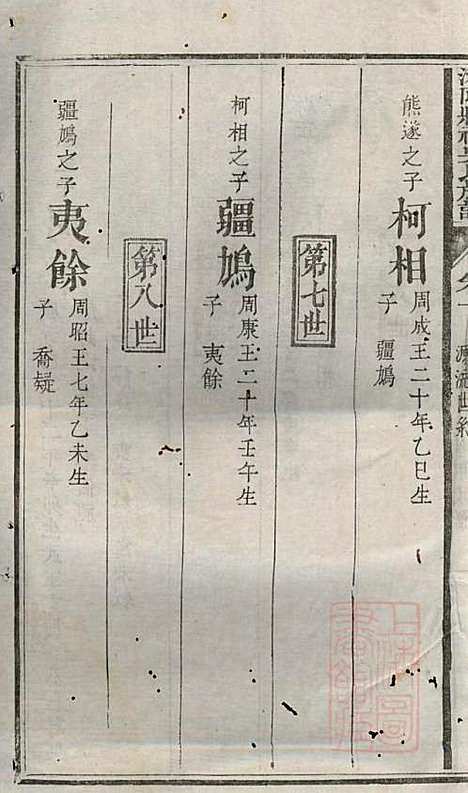 熊遂之子
柯相
周成王二十年乙巳生
子 疆鳩
第七世
柯相之子
疆鳩
周康王二十年壬午生
子 夷餘
第八世
疆鳩之子
夷餘
周昭王七年乙未生
子 喬疑